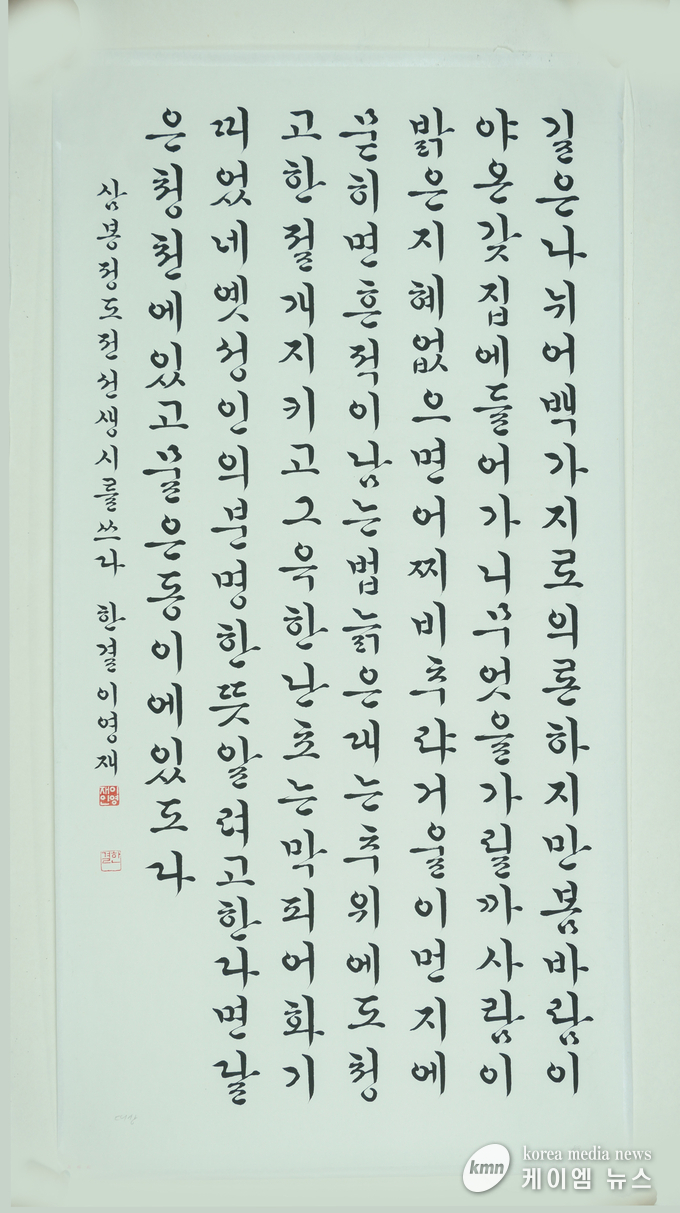 길은나뉘어백가지로의론하지만봄바람이
야온갖집에들어가니무엇을가릴까사람이
밝은지혜없으면어찌비추랴거울이먼지에
묻히면흔적이남는법늙은대는추위에도청
고한절개지키고그윽한난초는막피어화기
띠었네옛성인의분명한뜻알려고한다면달
은청천에있고물은동이에있도다
삼봉정도전선생시를쓰다 한결이영재
이영재인
한결
kmn
korea media news
케이엠 뉴스